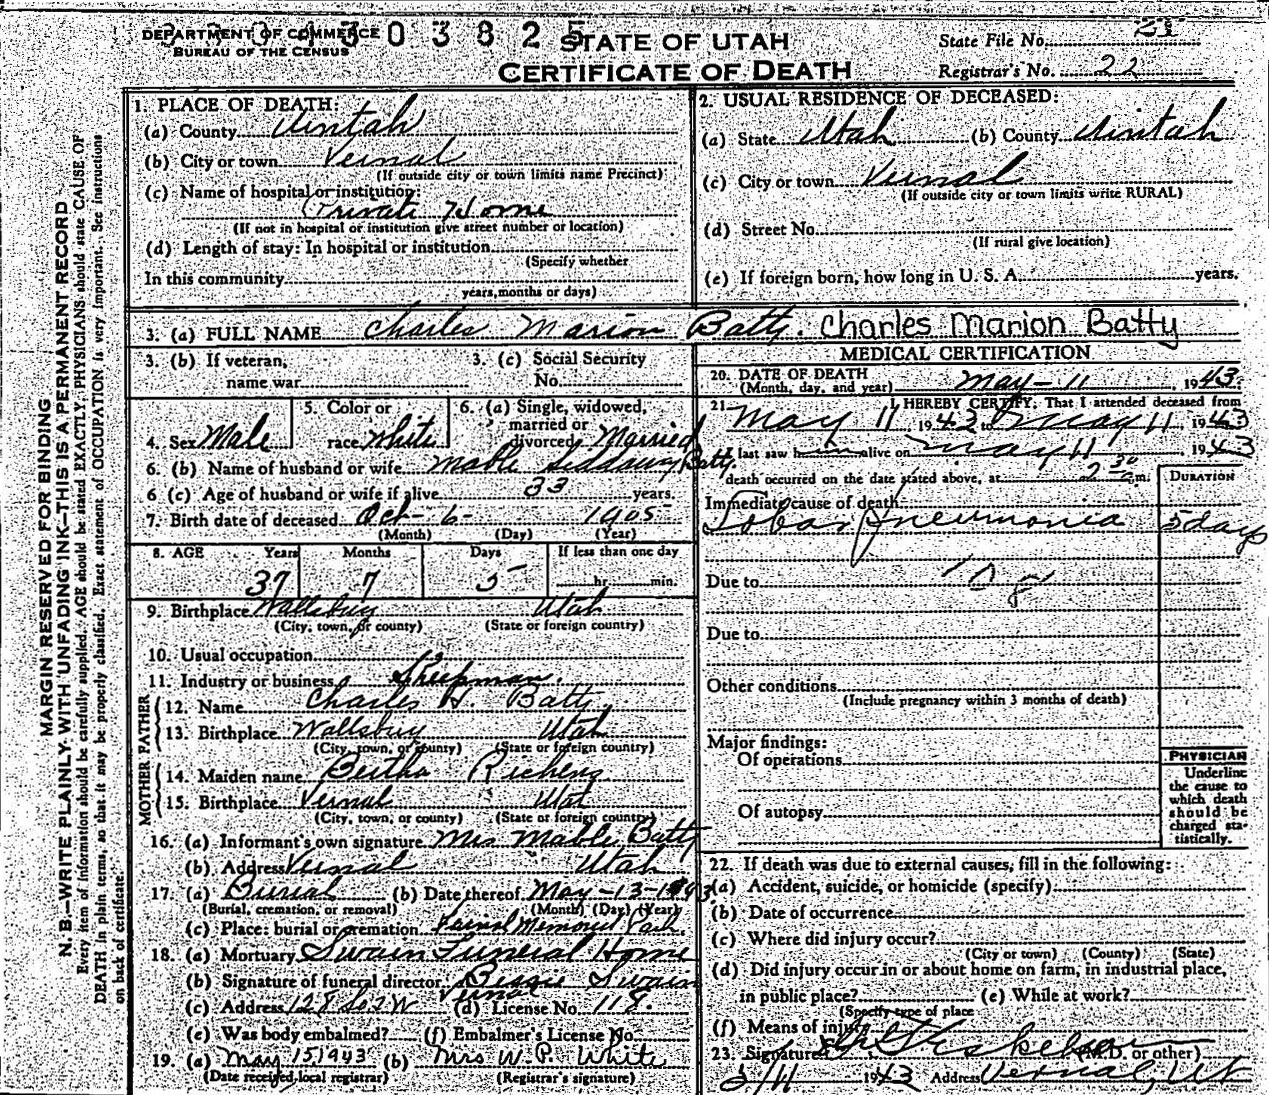 DEPARTMENT OF COMMERCE
BUREAU OF THE CENSUS
3 0 3 8 2 5
STATE OF UTAH
CERTIFICATE OF DEATH
State File No.
Registrar's No. 22
MARGIN RESERVED FOR BINDING
N. B.—WRITE PLAINLY WITH UNFADING INK—THIS IS A PERMANENT RECORD
Every item of information should be carefully supplied. AGE should be stated EXACTLY. PHYSICIANS should state CAUSE OF
DEATH in plain terms, so that it may be properly classified. Exact statement of OCCUPATION is very important. See instructions
on back of certificate.
1. PLACE OF DEATH:
(a) County Uintah
(b) City or town Vernal
(If outside city or town limits name Precinct)
(c) Name of hospital or institution:
Private Home
(If not in hospital or institution give street number or location)
(d) Length of stay: In hospital or institution
(Specify whether
In this community
years, months or days)
2. USUAL RESIDENCE OF DECEASED:
(a) State Utah (b) County Uintah
(c) City or town Vernal
(If outside city or town limits write RURAL)
(d) Street No.
(If rural give location)
(e) If foreign born, how long in U. S. A. years.
3. (a) FULL NAME Charles Marion Batty. Charles Marion Batty
3. (b) If veteran,
name war
3. (c) Social Security
No.
4. Sex Male
5. Color or
race white
6. (a) Single, widowed,
married or
divorced Married
6. (b) Name of husband or wife Mable Siddaway Batty
6 (c) Age of husband or wife if alive 33 years.
7. Birth date of deceased Oct- 6- 1905
(Month) (Day) (Year)
8. AGE Years Months Days If less than one day
37 7 5 hr. min.
9. Birthplace Wallsburg Utah
(City, town, or county) (State or foreign country)
10. Usual occupation
11. Industry or business Sheepman.
FATHER
12. Name Charles H. Batty
13. Birthplace Wallsburg Utah
(City, town, or county) (State or foreign country)
MOTHER
14. Maiden name Bertha Richens
15. Birthplace Vernal Utah
(City, town, or county) (State or foreign country)
16. (a) Informant's own signature Mrs Mable Batty
(b) Address Vernal Utah
17. (a) Burial (b) Date thereof May-13-1943
(Burial, cremation, or removal) (Month) (Day) (Year)
(c) Place: burial or cremation Vernal Memorial Park.
18. (a) Mortuary Swain Funeral Home
(b) Signature of funeral director Bessie Swain
Vernal
(c) Address 128 So 2 W (d) License No. 118.
(e) Was body embalmed? (f) Embalmer's License No.
19. (a) May 15 1943 (b) Mrs W. P. White
(Date received local registrar) (Registrar's signature)
MEDICAL CERTIFICATION
20. DATE OF DEATH
(Month, day, and year) May-11, 1943.
21. I HEREBY CERTIFY, That I attended deceased from
May 11 1943 to May 11 1943
last saw him alive on May 11 1943
death occurred on the date stated above, at 2 30 m.
DURATION
Immediate cause of death
Lobar pneumonia 5 days
Due to 108
Due to
Other conditions
(Include pregnancy within 3 months of death)
Major findings:
Of operations
Of autopsy
PHYSICIAN
Underline
the cause to
which death
should be
charged sta-
tistically.
22. If death was due to external causes, fill in the following:
(a) Accident, suicide, or homicide (specify)
(b) Date of occurrence
(c) Where did injury occur?
(City or town) (County) (State)
(d) Did injury occur in or about home on farm, in industrial place,
in public place? (e) While at work?
(Specify type of place
(f) Means of injury
23. Signature (M.D. or other)
1943 Address Vernal, Ut